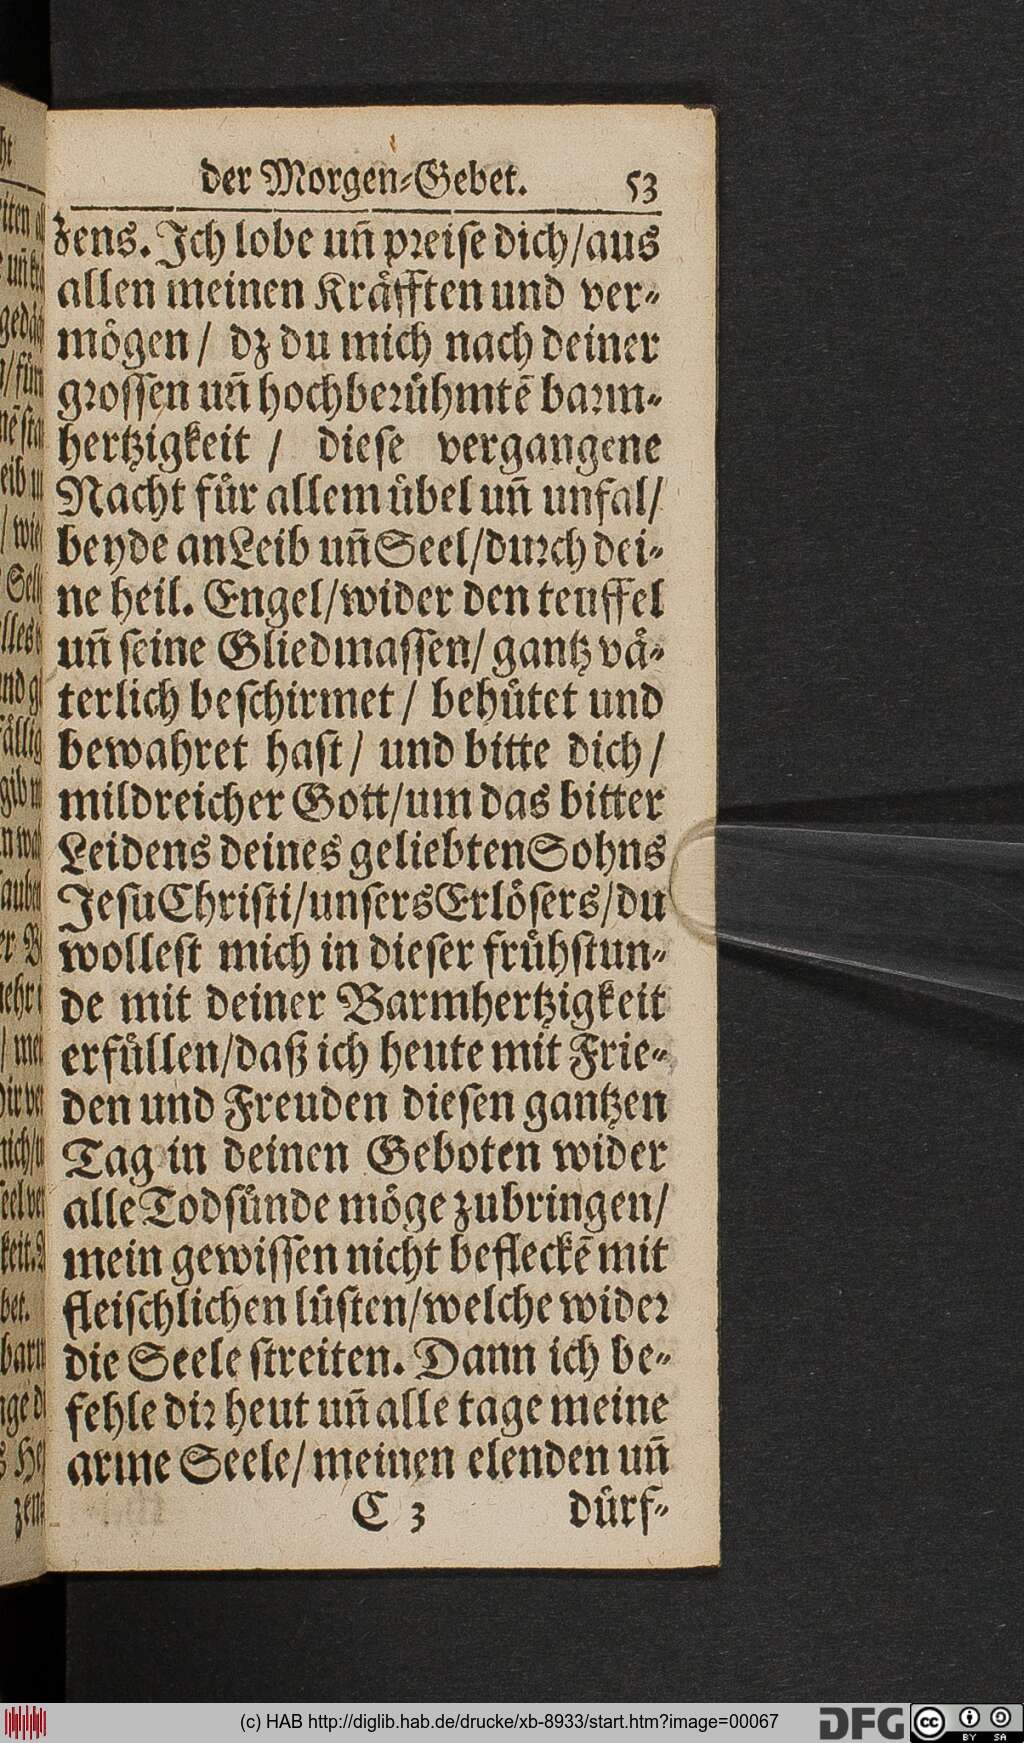 der Morgen-Gebet. 53
zens. Ich lobe uñ preise dich/aus
allen meinen Kräfften und ver-
mögen / dz du mich nach deiner
grossen uñ hochberühmtē barm-
hertzigkeit / diese vergangene
Nacht für allem übel uñ unfal/
beyde an Leib uñ Seel/durch dei-
ne heil. Engel/wider den teuffel
uñ seine Gliedmassen/ gantz vä-
terlich beschirmet / behütet und
bewahret hast / und bitte dich /
mildreicher Gott/um das bitter
Leidens deines geliebten Sohns
Jesu Christi/unsers Erlösers/du
wollest mich in dieser frühstun-
de mit deiner Barmhertzigkeit
erfüllen/daß ich heute mit Frie-
den und Freuden diesen gantzen
Tag in deinen Geboten wider
alle Todsünde möge zubringen/
mein gewissen nicht befleckē mit
fleischlichen lüsten/welche wider
die Seele streiten. Dann ich be-
fehle dir heut uñ alle tage meine
arme Seele/ meinen elenden uñ
C 3 dürf-
(c) HAB http://diglib.hab.de/drucke/xb-8933/start.htm?image=00067
DFG cc BY SA